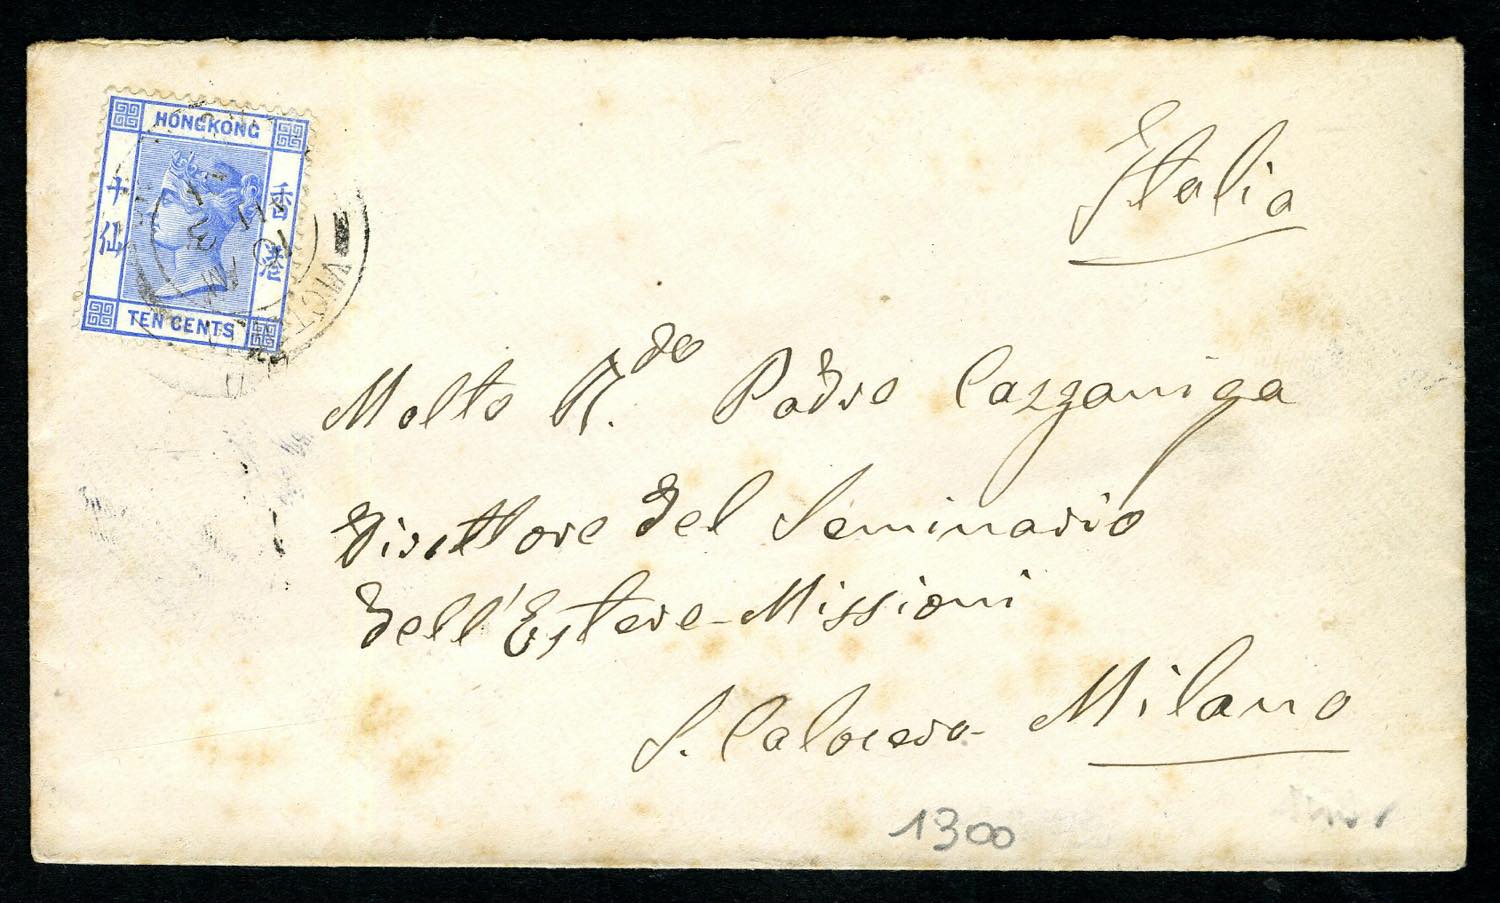 HONGKONG
香港
十仙
TEN CENTS
VICTORIA
Italia
Molto R.do Padre Cazzaniga
Direttore del Seminario
dell'Estere-Missioni
S. Calocero- Milano
1300